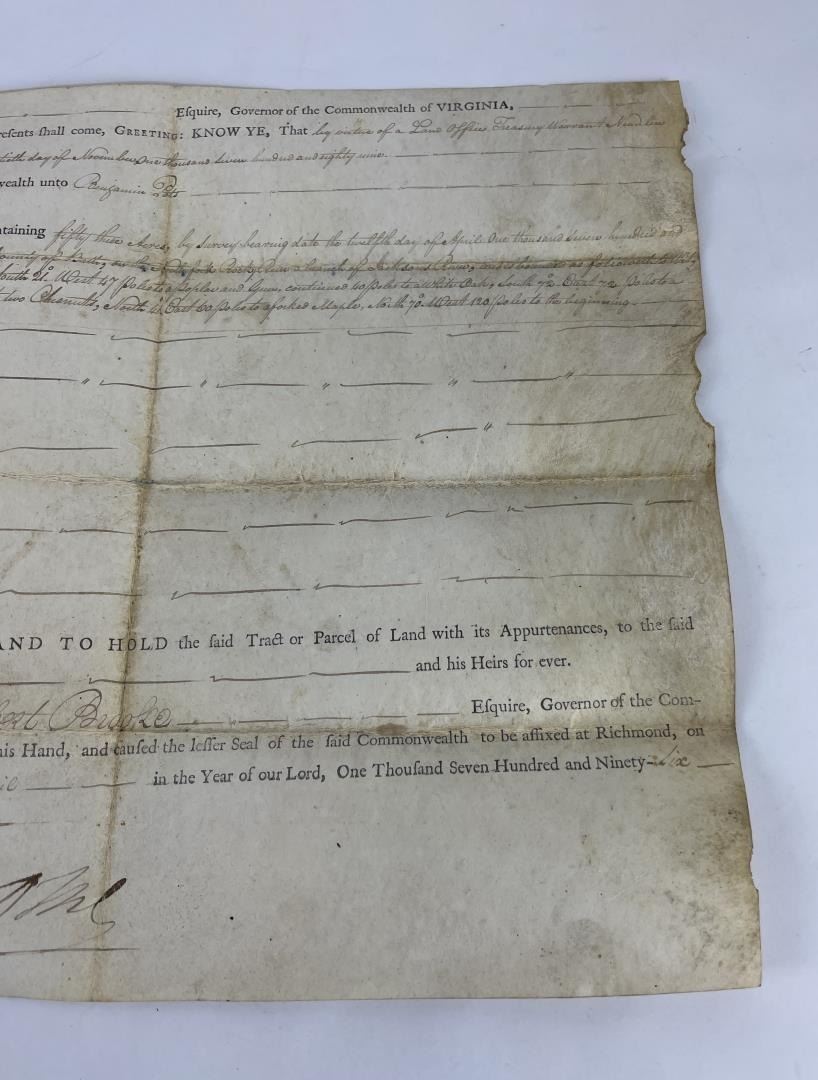 Eſquire, Governor of the Commonwealth of VIRGINIA,
reſents ſhall come, GREETING: KNOW YE, That by virtue of a Land Office Treasury Warrant Number
tieth day of November One thousand seven hundred and eighty nine.
wealth unto Benjamin
ntaining fifty three Acres, by Survey bearing date the twelfth day of April One thousand seven hundred and
County of Bath, on the North fork Rocky Run a branch of Jacksons River, and is bounded as followeth to Wit,
South 21° West 47 poles to a Poplar and Gum, continued 40 poles to a White Oak, South 72° East 72 poles to a
two Chesnuts, North East 60 poles to a forked Maple, North 70° West 120 poles to the beginning.
AND TO HOLD the ſaid Tract or Parcel of Land with its Appurtenances, to the ſaid
and his Heirs for ever.
bert Brooke Eſquire, Governor of the Com-
his Hand, and cauſed the leſſer Seal of the ſaid Commonwealth to be affixed at Richmond, on
in the Year of our Lord, One Thouſand Seven Hundred and Ninety-Six